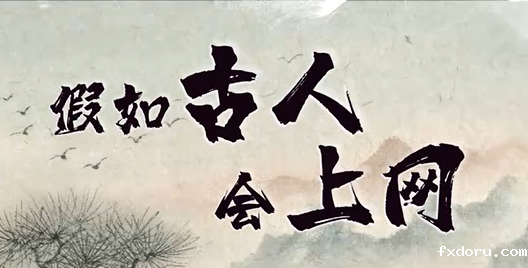 假如古人
会上网
fxdoru.com